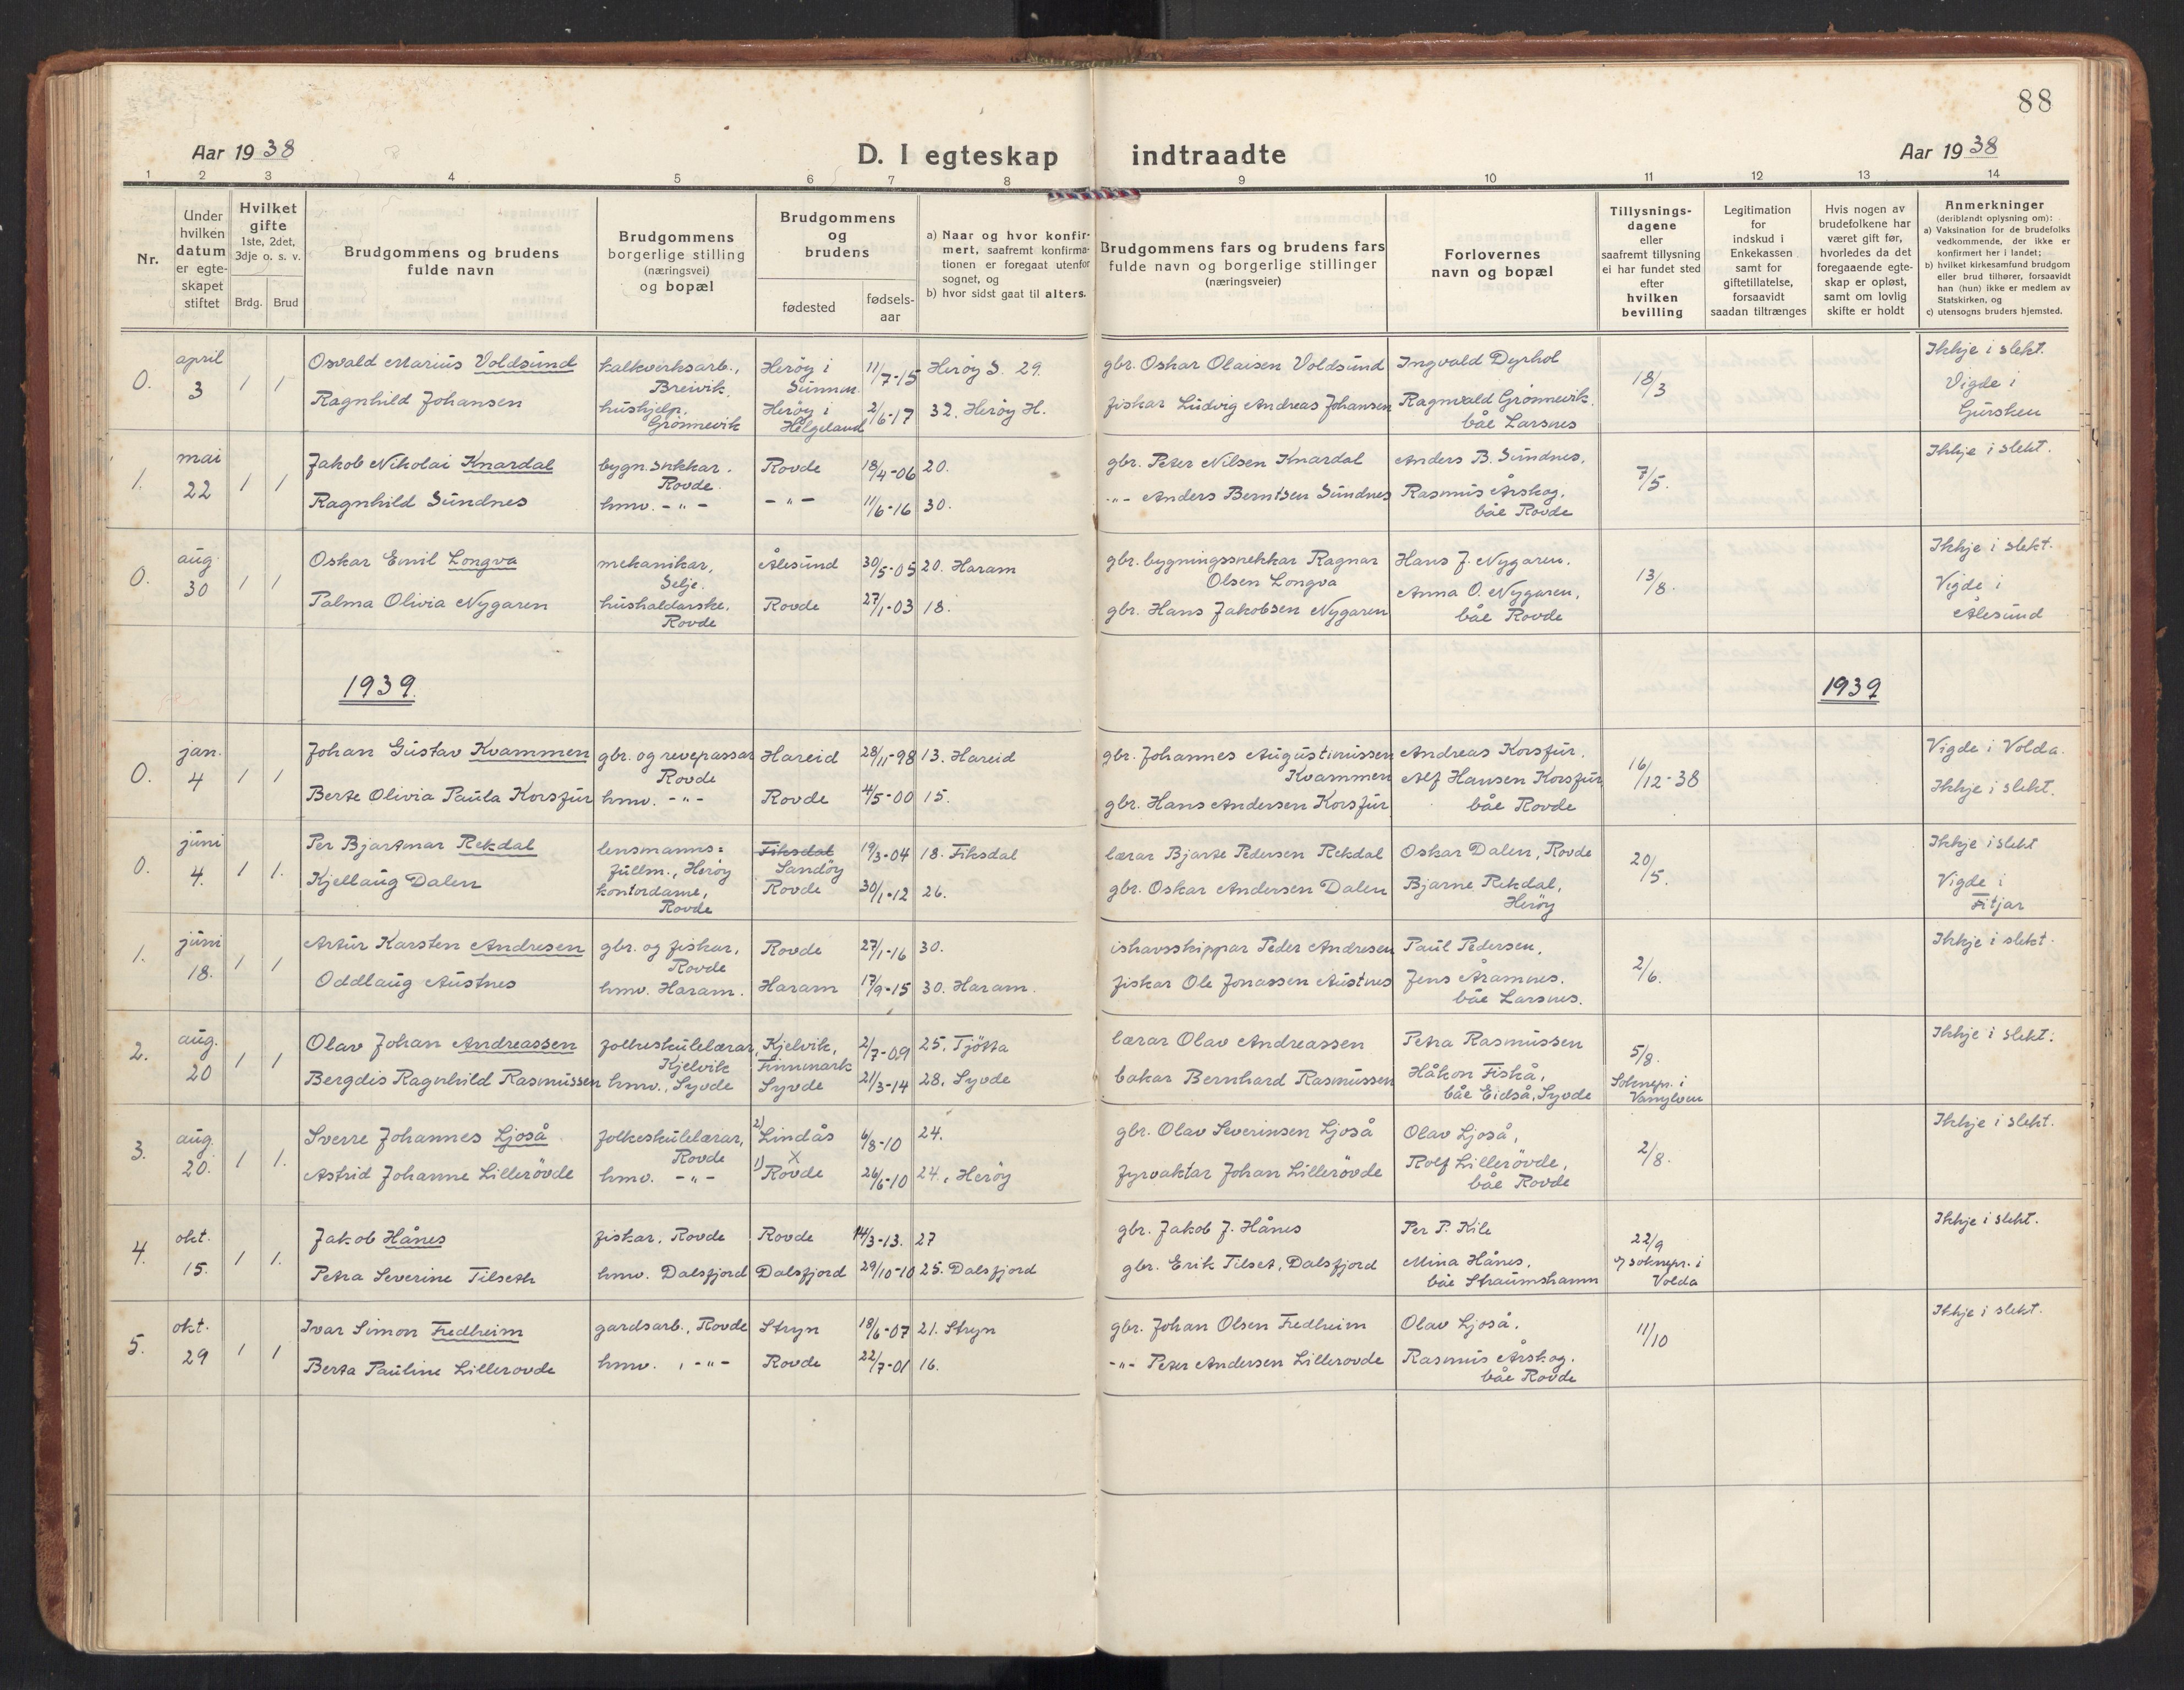 88
Aar 1938
D. I egteskap indtraadte
Aar 1938
1 2 3 4 5 6 7 8 9 10 11 12 13 14
Nr.
Under
hvilken
datum
er egte-
skapet
stiftet
Hvilket
gifte
1ste, 2det,
3dje o. s. v.
Brdg. Brud
Brudgommens og brudens
fulde navn
Brudgommens
borgerlige stilling
(næringsvei)
og bopæl
Brudgommens
og
brudens
fødested
fødsels-
aar
a) Naar og hvor konfir-
mert, saafremt konfirma-
tionen er foregaat utenfor
sognet, og
b) hvor sidst gaat til alters.
Brudgommens fars og brudens fars
fulde navn og borgerlige stillinger
(næringsveier)
Forlovernes
navn og bopæl
Tillysnings-
dagene
eller
saafremt tillysning
ei har fundet sted
efter
hvilken
bevilling
Legitimation
for
indskud i
Enkekassen
samt for
giftetillatelse,
forsaavidt
saadan tiltrænges
Hvis nogen av
brudefolkene har
været gift før,
hvorledes da det
foregaaende egte-
skap er opløst,
samt om lovlig
skifte er holdt
Anmerkninger
(deriblendt oplysning om):
a) Vaksination for de brudefolks
vedkommende, der ikke er
konfirmert her i landet;
b) hvilket kirkesamfund brudgom
eller brud tilhører, forsaavidt
han (hun) ikke er medlem av
Statskirken, og
c) utensogns bruders hjemsted.
0.
april
3
1 1
Osvald Marius Voldsund
Ragnhild Johansen
kalkverksarb.,
Breivik.
hushjelp.
Grønnevik
Herøy i
Sunnm.
Herøy i
Helgeland
11/7-15
2/6-17
Herøy S. 29.
32. Herøy H.
gbr. Oskar Olaisen Voldsund
fiskar Ludvig Andreas Johansen
Ingvald Dyrhol
Ragnvald Grønnevik.
båe Larsnes
18/3
Ikkje i slekt.
Vigde i
Gursken
1.
mai
22
1 1
Jakob Nikolai Knardal
Ragnhild Sundnes
bygn.snikkar.
Rovde.
hmv. -"-
Rovde
-"-
18/4-06
11/6-16
20.
30.
gbr. Peter Nilsen Knardal
-"- Anders Berntsen Sundnes
Anders B. Sundnes,
Rasmus Årskog.
båe Rovde
7/5.
Ikkje i slekt.
0.
aug
30
1 1
Oskar Emil Longva
Palma Olivia Nygaren
mekanikar,
Selje.
hushaldarske.
Rovde
Ålesund
Rovde
30/5-05
27/1-03
20. Haram
18.
gbr. bygningssnekkar Ragnar
Olsen Longva
gbr. Hans Jakobsen Nygaren
Hans J. Nygaren.
Anna O. Nygaren,
båe Rovde
13/8.
Ikkje i slekt.
Vigde i
Ålesund
1939.
1939
0.
jan.
4
1 1
Johan Gustav Kvammen
Berte Olivia Paula Korsfur
gbr. og revepassar
Rovde
hmv. -"-
Hareid
Rovde
28/11-98
4/5-00
13. Hareid
15.
gbr. Johannes Augustinussen
Kvammen
gbr. Hans Andersen Korsfur
Andreas Korsfur.
Alf Hansen Korsfur
båe Rovde
16/12-38
Vigde i Volda.
Ikkje i slekt.
0.
juni
4.
1 1.
Per Bjartmar Rekdal
Kjellaug Dalen
lensmanns=
fullm., Herøy
kontordame,
Rovde
Fiksdal
Sandøy
Rovde
19/3-04
30/1-12
18. Fiksdal
26.
lærar Bjarte Pedersen Rekdal
gbr. Oskar Andersen Dalen
Oskar Dalen, Rovde
Bjarne Rekdal,
Herøy
20/5.
Ikkje i slekt
Vigde i
Fitjar
1.
juni
18.
1 1
Artur Karsten Andresen
Oddlaug Austnes
gbr. og fiskar,
Rovde
hmv. Haram.
Rovde
Haram
27/1-16
17/9-15
30.
30. Haram.
ishavsskippar Peder Andresen
fiskar Ole Jonassen Austnes
Paul Pedersen,
Jens Åramnes.
båe Larsnes.
2/6.
Ikkje i slekt.
2.
aug.
20
1 1
Olav Johan Andreassen
Bergdis Ragnhild Rasmussen
folkeskulelærar,
Kjelvik
hmv., Syvde
Kjelvik,
Finnmark
Syvde
2/7-09
21/3-14
25. Tjøtta
28. Syvde
lærar Olav Andreassen
bakar Bernhard Rasmussen
Petra Rasmussen
Håkon Fiskå,
båe Eidså, Syvde
5/8.
Soknepr. i
Vanylven
Ikkje i slekt.
3.
aug.
20.
1 1.
Sverre Johannes Ljoså
Astrid Johanne Lillerövde
folkeskulelærar,
Rovde
hmv. -"-
2) Lindås
X
1) Rovde
6/8-10
26/6-10
24.
24., Herøy
gbr. Olav Severinsen Ljoså
fyrvaktar Johan Lillerövde
Olav Ljoså,
Rolf Lillerövde,
båe Rovde
2/8.
Ikkje i slekt.
4.
okt.
15.
1 1.
Jakob Hånes
Petra Severine Tilseth
fiskar, Rovde
hmv. Dalsfjord
Rovde
Dalsfjord
14/3-13.
29/10-10
27
25. Dalsfjord
gbr. Jakob J. Hånes
gbr. Erik Tilset, Dalsfjord
Per P. Kile
Mina Hånes,
båe Straumshamn
22/9
soknepr. i
Volda
Ikkje i slekt.
5.
okt.
29
1 1
Ivar Simon Fredheim
Berta Pauline Lillerovde
gardsarb., Rovde
hmv. , -"-
Stryn
Rovde
18/6-07
22/7-01
21. Stryn
16.
gbr. Johan Olsen Fredheim
-"- Peter Andersen Lillerovde
Olav Ljoså.
Rasmus Årskog.
båe Rovde
11/10
Ikkje i slekt.